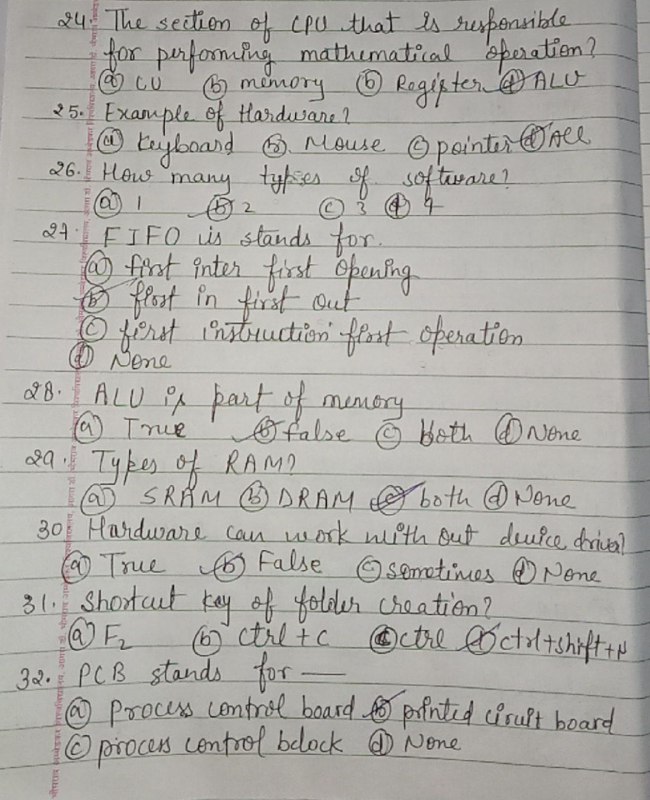 24. The section of CPU that is responsible
for performing mathematical operation?
(a) CU (b) memory (b) Register (d) ALU
25. Example of Hardware?
(a) Keyboard (b) Mouse (c) pointer (d) All
26. How many types of software?
(a) 1 (b) 2 (c) 3 (d) 4
27. FIFO is stands for.
(a) first inter first opening
(b) first in first out
(c) first instruction first operation
(d) None
28. ALU is part of memory
(a) True (b) false (c) both (d) None
29. Types of RAM?
(a) SRAM (b) DRAM (c) both (d) None
30 Hardware can work with out device driver?
(a) True (b) False (c) sometimes (d) None
31. Shortcut key of folder creation?
(a) F2 (b) ctrl + c (c) ctrl (d) ctrl+shift+N
32. PCB stands for —
(a) Process control board (b) printed ciruit board
(c) process control bclock (d) None